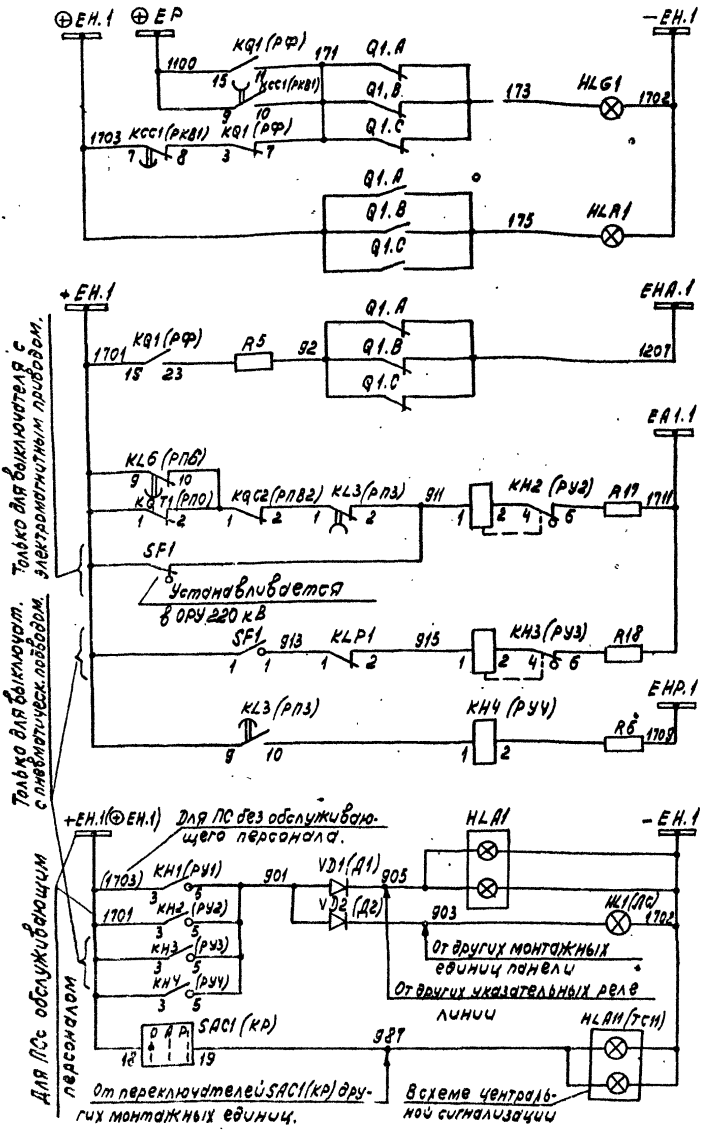 ⊕ EH.1
⊕ EP
− EH.1
KQ1 (РФ)
171
Q1.A
1100
15
11
KCC1(РКВ1)
Q1.B
173
HLG1
1702
9
10
1703
KCC1(РКВ1)
KQ1 (РФ)
Q1.C
7
8
3
7
Q1.A
Q1.B
175
HLR1
Q1.C
+ EH.1
EHA.1
KQ1(РФ)
Q1.A
1701
R5
92
Q1.B
1207
15
23
Q1.C
EA1.1
KL6 (РПБ)
9
10
KQT1(РПО)
KQC2(РПВ2)
KL3(РП3)
911
KH2 (РУ2)
R17
1711
1
2
1
2
1
2
1
2
4
6
SF1
Устанавливается
в ОРУ 220 кВ
SF1
913
KLP1
915
KH3(РУ3)
R18
1
1
1
2
1
2
4
6
EHP.1
KL3 (РП3)
KH4 (РУ4)
R6
1709
9
10
1
2
Только для выключателя с
электромагнитным приводом.
Только для выключат.
с пневматическ. подводом.
+EH.1(⊕EH.1)
Для ПС без обслуживаю-
щего персонала.
HLA1
− EH.1
(1703)
KH1(РУ1)
901
VD1(Д1)
905
3
5
1701
KH2
(РУ2)
VD2(Д2)
903
HL1(ЛС)
1702
3
5
KH3
(РУ3)
От других монтажных
единиц панели
3
5
KH4
(РУ4)
От других указательных реле
линии
3
5
О А Р
SAC1 (КР)
987
HLA11(ТС11)
18
19
От переключателей SAC1(КР) дру-
гих монтажных единиц.
В схеме централь-
ной сигнализации
Для ПС с обслуживающим
персоналом